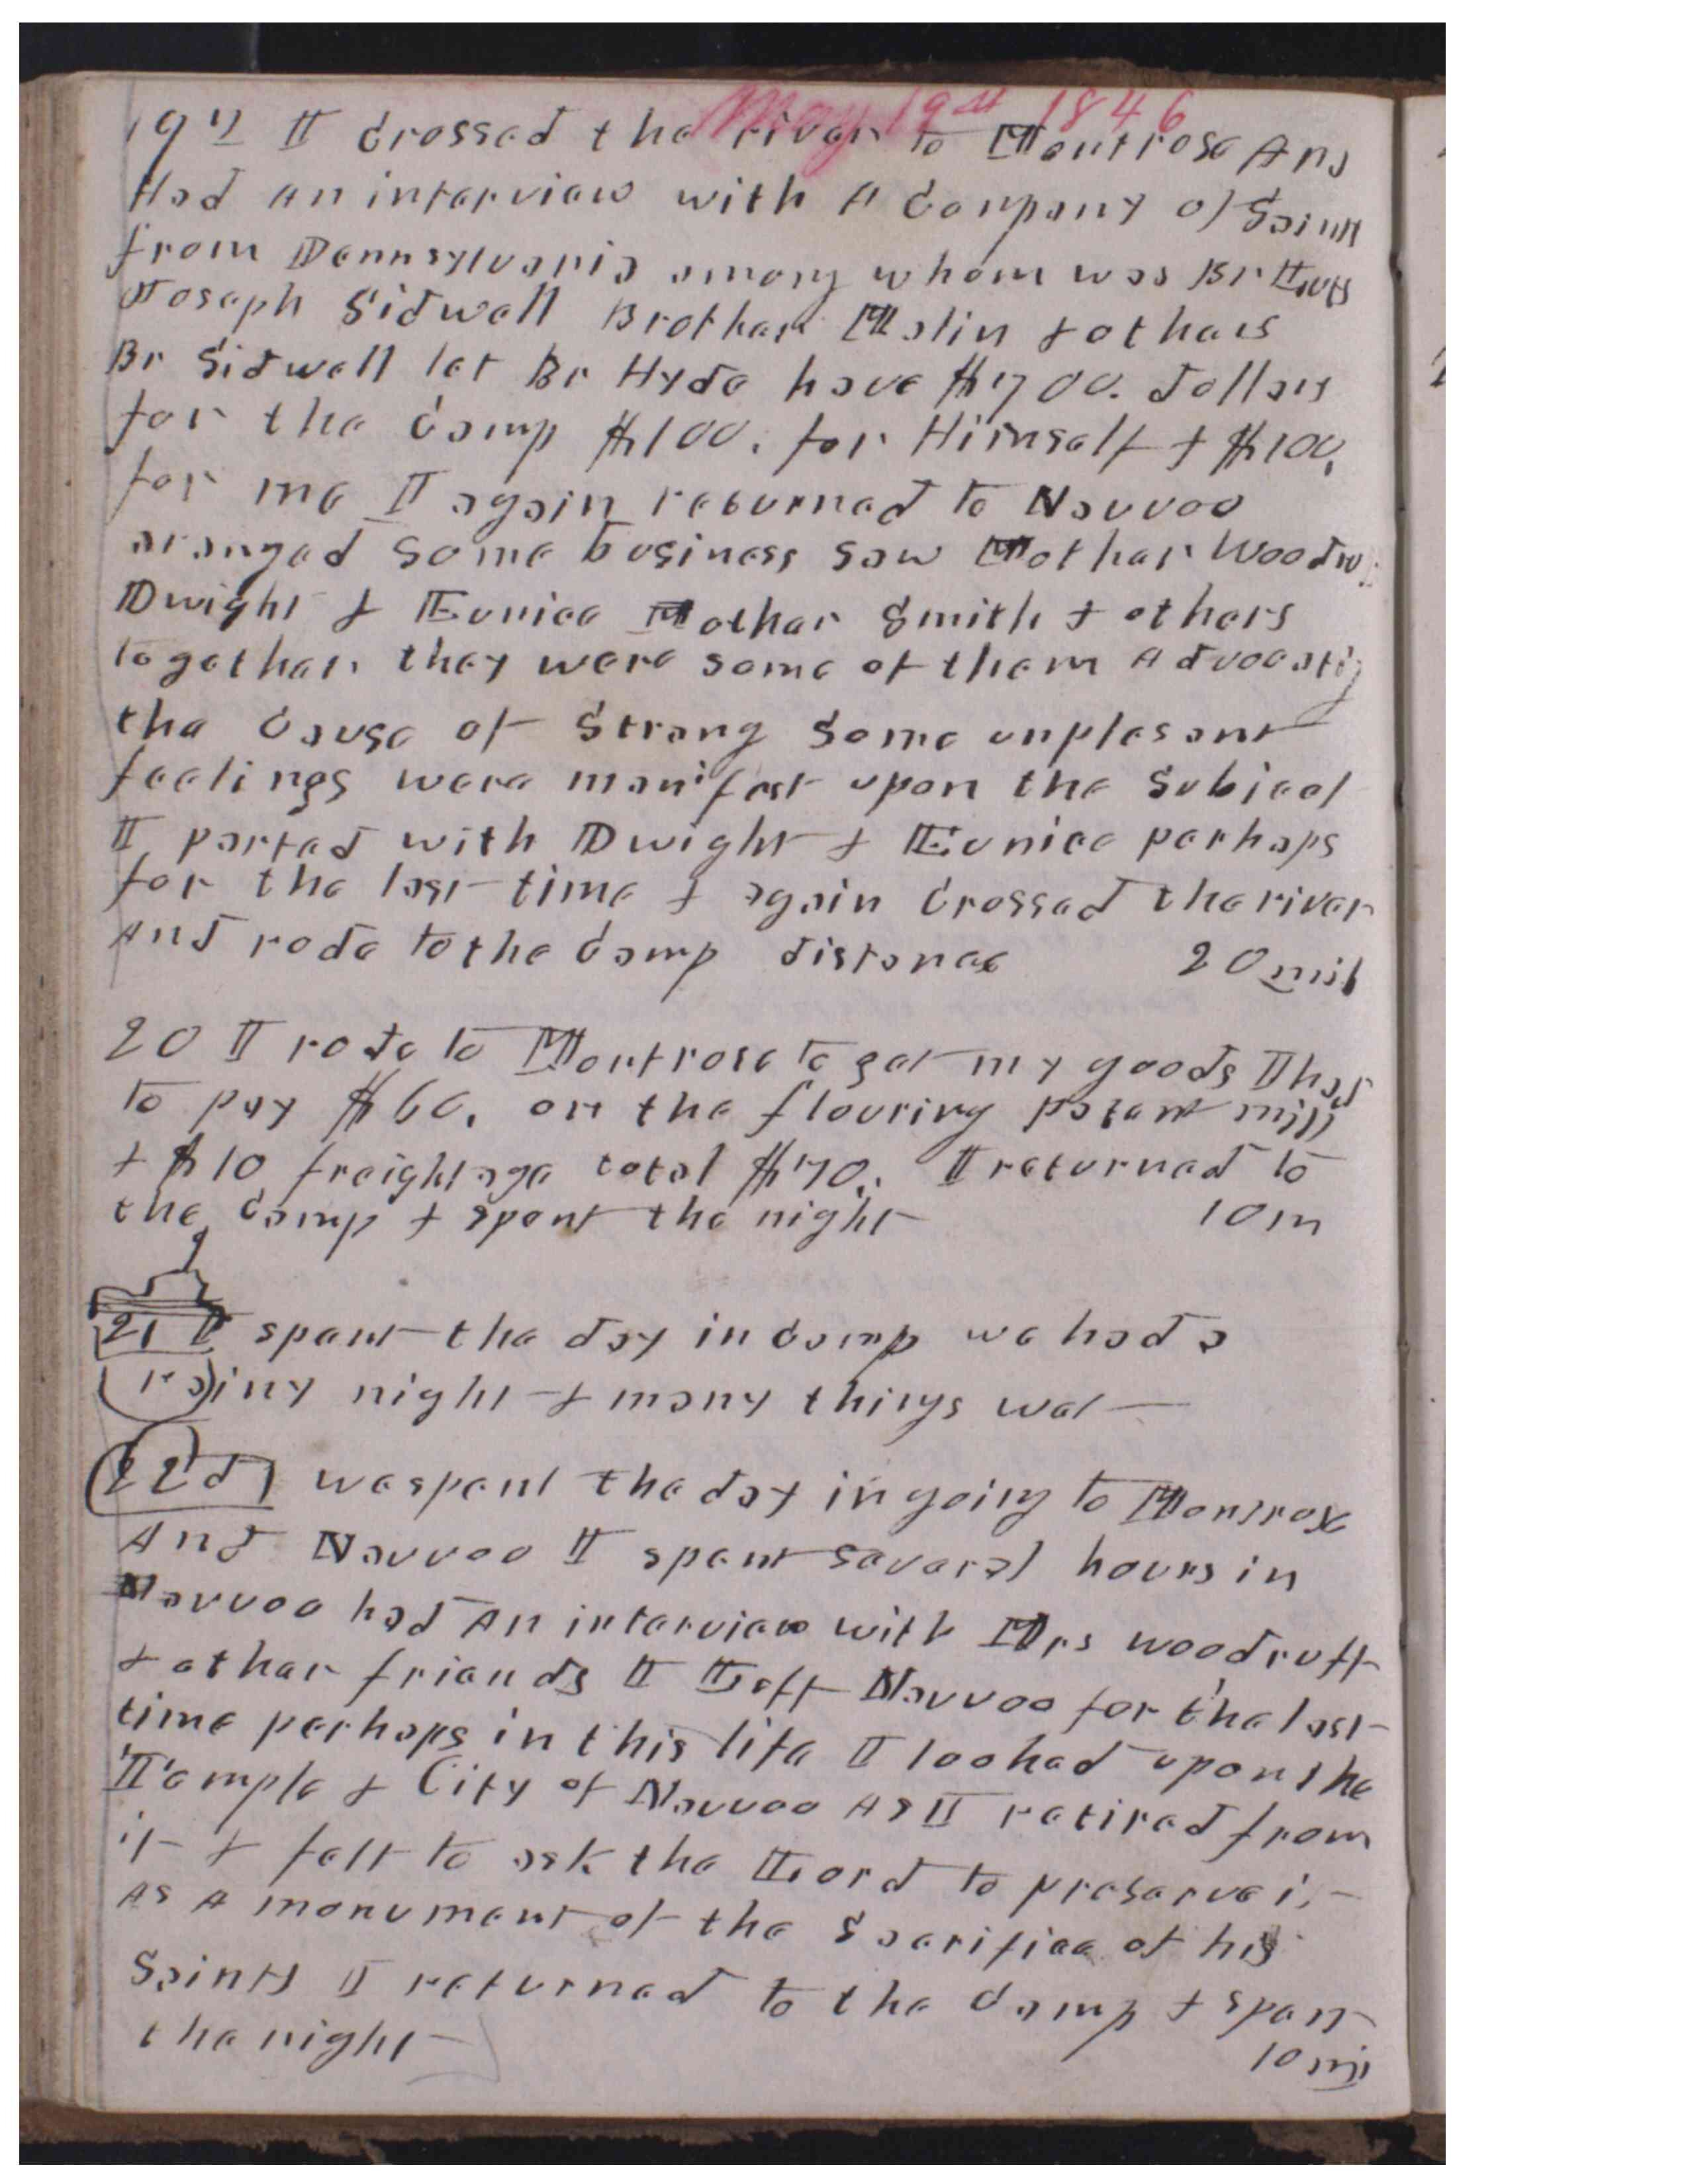 May 19th 1846
19th I crossed the river to Montrose And
Had an interview with A Company of Saints
from Pennsylvania among whom was Br
Joseph Sidwell Brother Malin & others
Br Sidwell let Br Hyde have $700. dollars
for the Camp $100. for Himself & $100,
for me I again returned to Nauvoo
aranged some business saw Mother Woodru
Dwight & Eunice Mother Smith & others
together. they were some of them Advocating
the Cause of Strang Some unplesant
feelings were manifest upon the Subject
I parted with Dwight & Eunice perhaps
for the last time & again Crossed the river
And rode to the Camp distance 20 mils
20 I rode to Montrose to get my goods I had
to pay $60, on the flouring patent mill
& $10 freightage total $70.. I returned to
the Camp & spent the night 10 m
21 I spent the day in Camp we had a
rainy night & many things wet
22d we spent the day in going to Montrose
And Nauvoo I spent several hours in
Nauvoo had An interview with Mrs woodruff
& other friends I Left Nauvoo for the last
time perhaps in this life I looked upon the
Temple & City of Nauvoo As I retired from
it & felt to ask the Lord to preserve it
As A monument of the Sacrifice of his
Saints I returned to the Camp & spent
the night 10 mi